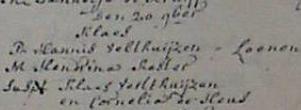 Den 20 9ber
Klaes
Pr Hannis Velthuijzen - Loenen
M Hendrina
Susp Klaes Velthuijzen
en Cornelia de